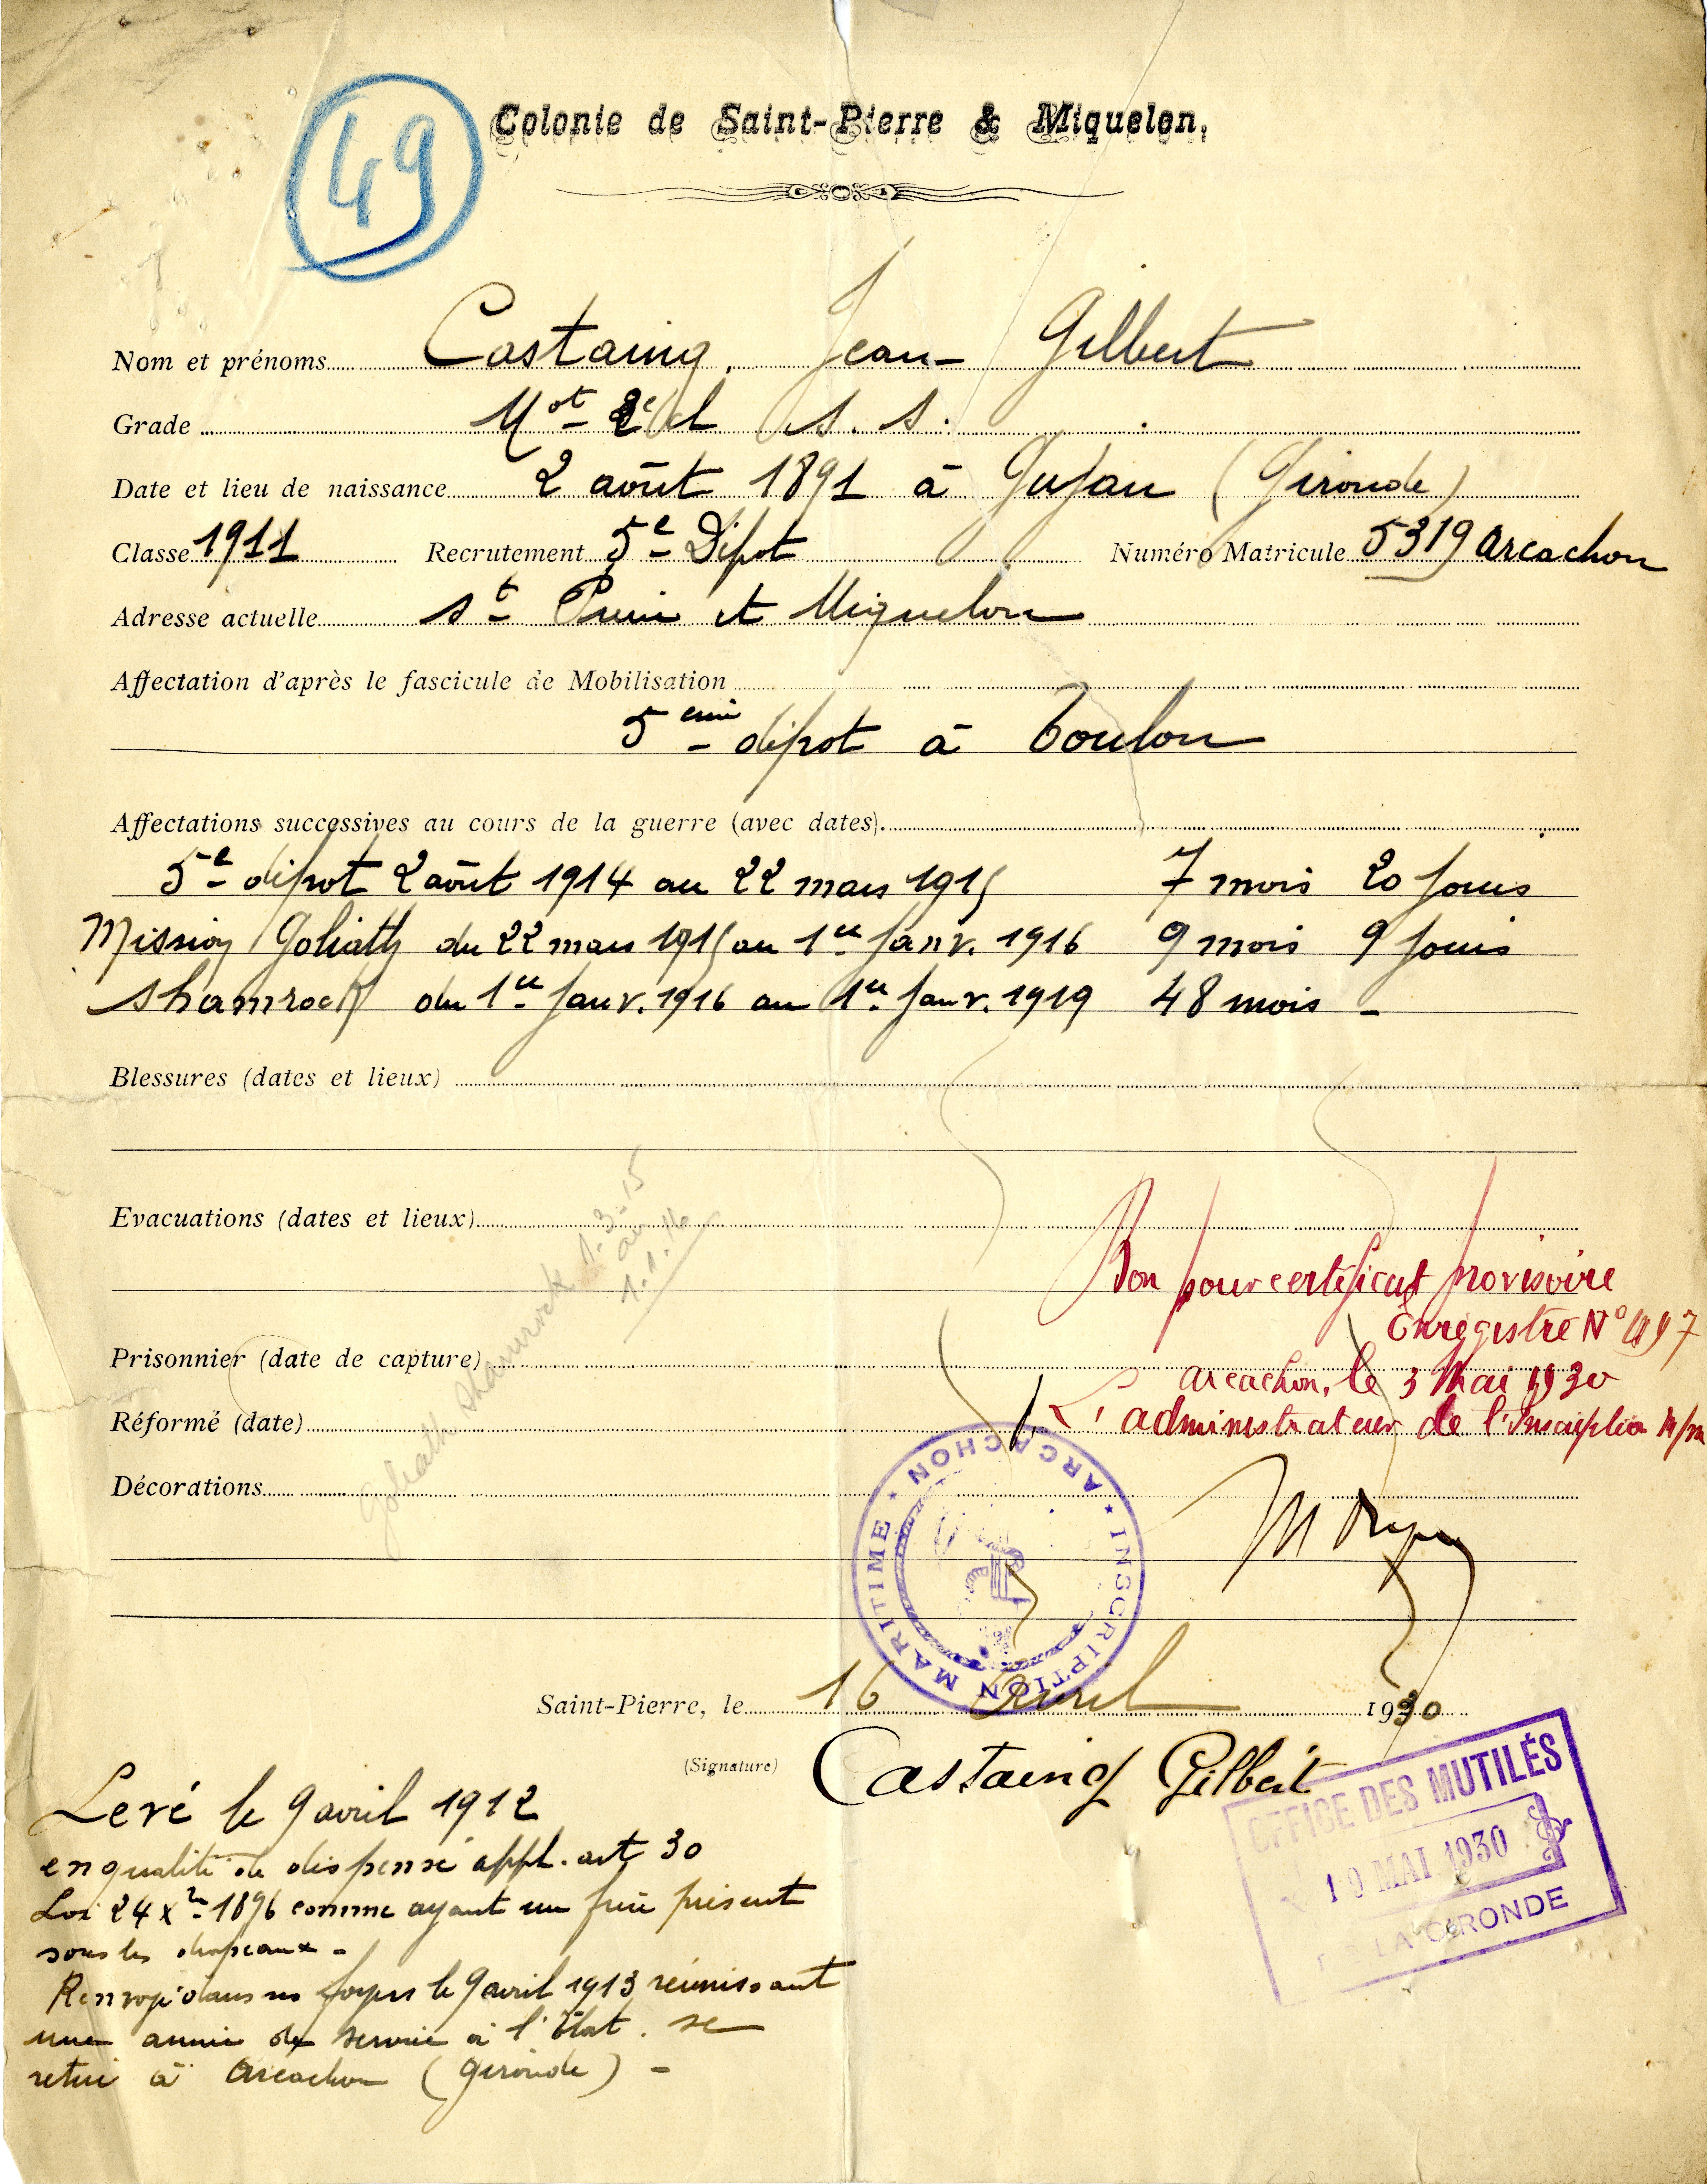 49
Colonie de Saint-Pierre & Miquelon.
Nom et prénoms Castaing Jean Gilbert
Grade Mot 2e cl s. s.
Date et lieu de naissance 2 août 1891 à Gujan (Gironde)
Classe 1911 Recrutement 5e Dépot Numéro Matricule 5319 Arcachon
Adresse actuelle St Pierre et Miquelon
Affectation d'après le fascicule de Mobilisation
5eme dépot à Toulon
Affectations successives au cours de la guerre (avec dates).
5e dépot 2 août 1914 au 22 mars 1915 7 mois 20 jours
Mission Goliath du 22 mars 1915 au 1er Janv. 1916 9 mois 9 jours
Shamrock du 1er Janv. 1916 au 1er Janv. 1919 48 mois -
Blessures (dates et lieux)
Evacuations (dates et lieux)
Goliath Shamrock 1.3.15
au
1.1.16
Bon pour certificat provisoire
Enregistré N°
Prisonnier (date de capture)
Arcachon, le 3 Mai 1930
Réformé (date)
L'administrateur de l'Inscription M/me
Décorations
ARCACHON ★ INSCRIPTION MARITIME ★
Saint-Pierre, le 16 Avril 1930
(Signature) Castaing Gilbert
OFFICE DES MUTILÉS
19 MAI 1930
DE LA GIRONDE
Levé le 9 avril 1912
en qualité de dispensé appl. art 30
Loi 24 Xbre 1896 comme ayant un frère présent
sous les drapeaux -
Renvoyé dans ses foyers le 9 avril 1913 réunissant
une année de service à l'État. se
retire à Arcachon (Gironde) -